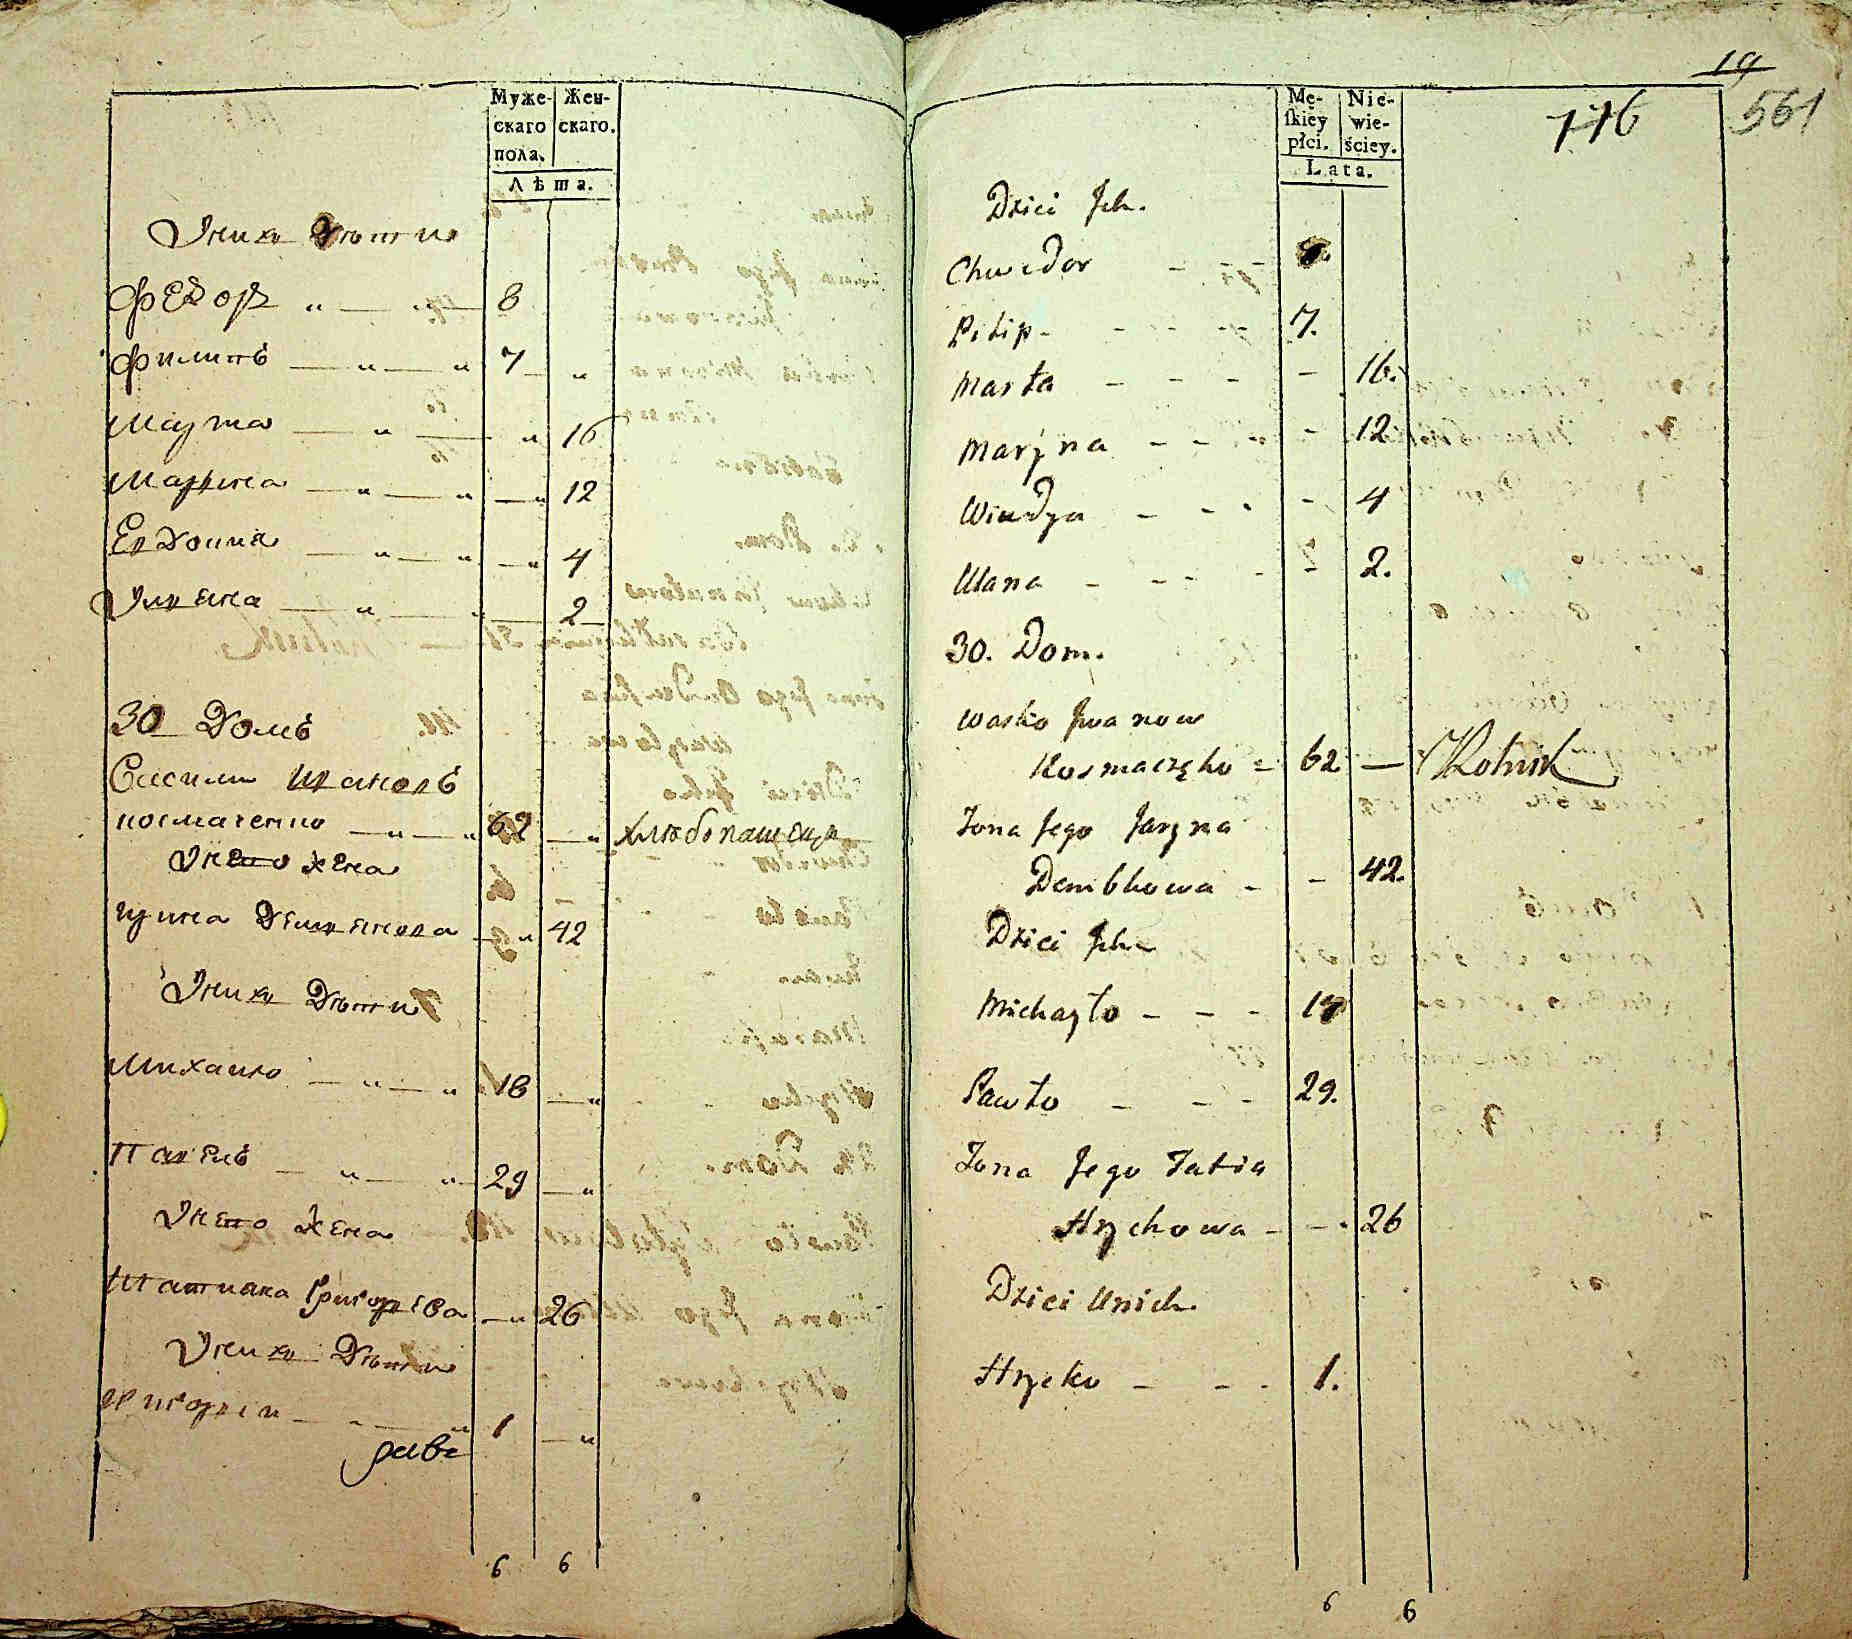 Муже-
скаго
пола.
Жен-
скаго.
Лѣта.
У нихъ Дѣти
Федоръ 8
Филипъ 7
Марта 16
Марина 12
Евдокия 4
Улияна 2
30 Домъ
Василий Ивановъ
Космаченко 62 хлѣбопашецъ
У него жена
Ирина Демиянова 42
У нихъ Дѣти
Михаило 18
Павелъ 29
У него жена
Татияна Григориева 26
У нихъ Дѣти
Григорий 1
6 6
19
Mę-
ſkiey
płci.
Nie-
wie-
ściey.
Lata.
116
561
Dzieci Jch.
Chwedor
Pilip 7.
Marta 16.
Maryna 12
Wiudya 4
Ulana 2.
30. Dom.
Wasko Jwanow
Kosmaczęko 62 Rolnik
Żona Jego Jaryna
Dembkowa 42.
Dzieci Jch
Michayło 18
Pawło 29.
Żona Jego Tatia
Hrychowa 26
Dzieci Unich.
Hrycko 1.
6 6